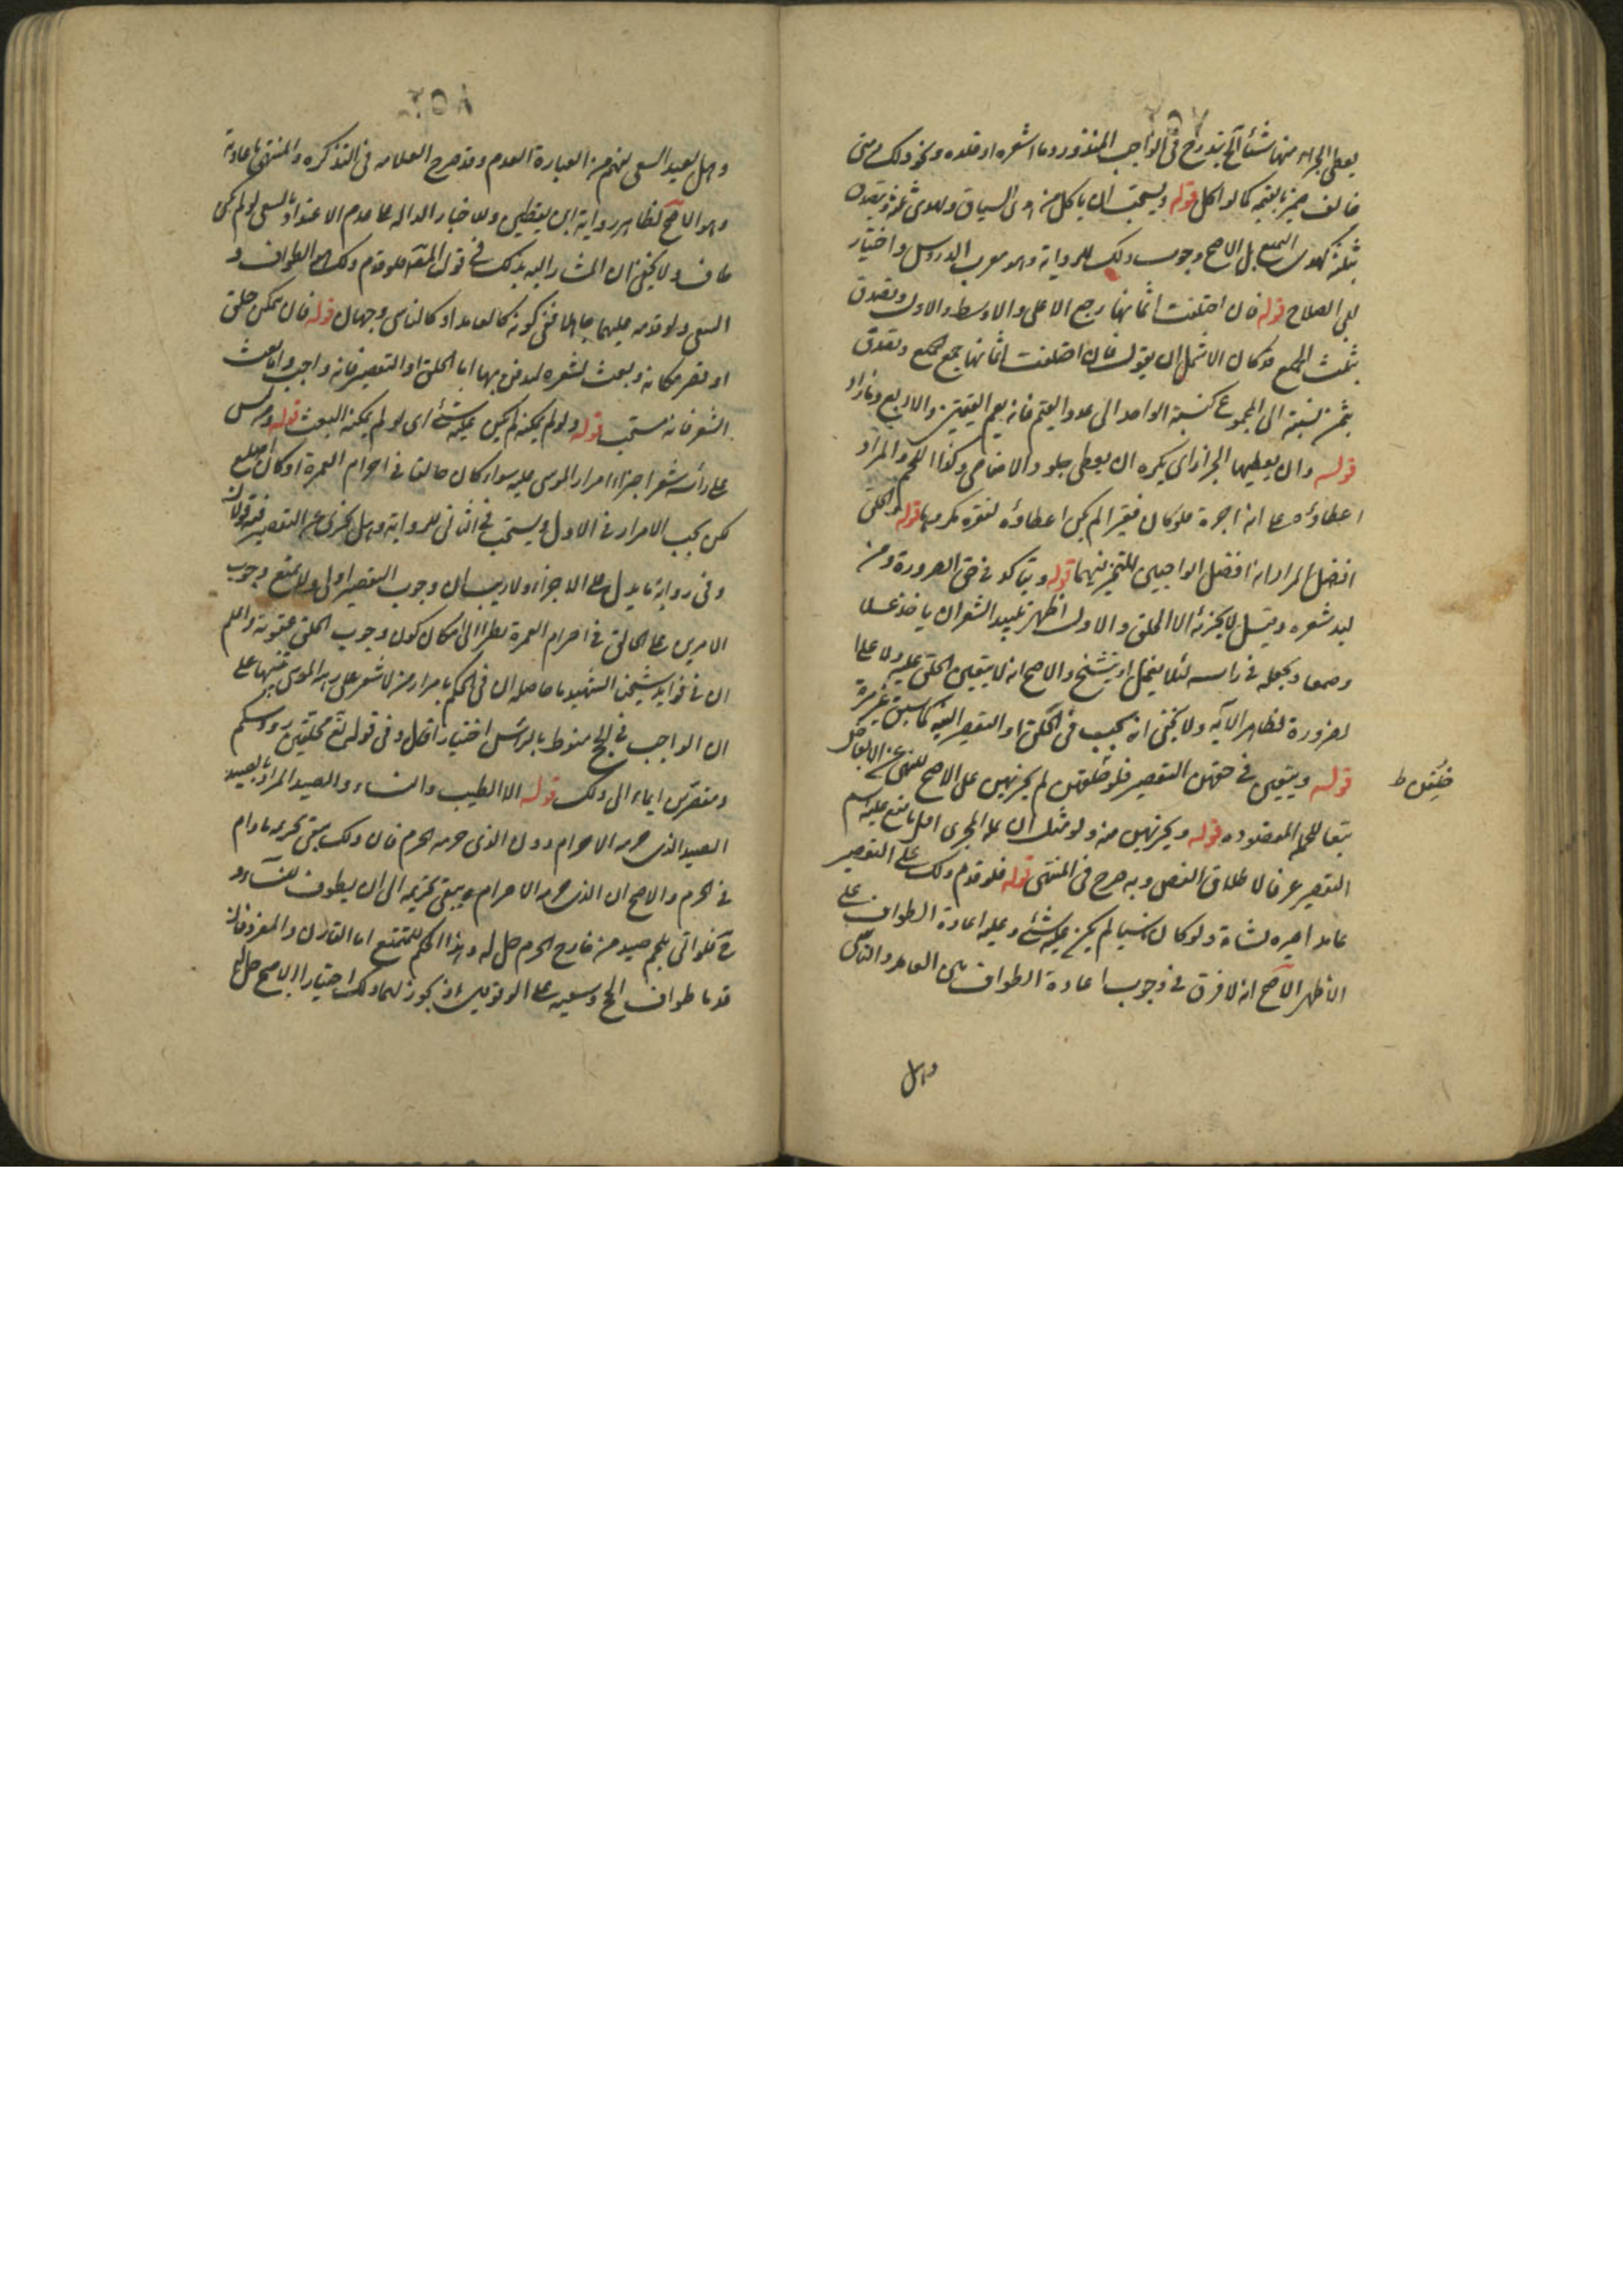 يعطى الجزار منها شيئا الخ يندرج فى الواجب المنذور وما اشعره او قلده ونحو ذلك ومتى
خالف ضمنه بقيمته كما لو اكل قوله ويستحب ان ياكل من هدى السياق ويهدى ثلثه ويتصدق
بثلثه كهدى التمتع بل الاصح وجوب ذلك للرواية وهو مقرب الدروس واختيار
ابى الصلاح قوله فان اختلفت اثمانها رجع الاعلى والاوسط والادون وتصدق
بثلث الجميع ولو كان الاشمل ان يقول فان اختلفت اثمانها جمع الجميع وتصدق
بثمن نسبته الى المجموع كنسبة الواحد الى عدد القيم فانه يعم القيمتين والاربع وما زاد
قوله وان يعطيها الجزار اى يكره ان يعطى جلود الاضاحى وكذا اللحم والمراد
اعطاؤه على انه اجرة فلو كان فقيرا لم يكن اعطاؤه لفقره مكروها قوله والحلق
افضل المراد انه افضل الواجبين المتخير فيهما قوله ويتاكد فى حق الصرورة ومن
لبد شعره وقيل لا يجزئه الا الحلق والاول اظهر تلبيد الشعر ان ياخذ عسلا
وصمغا ويجعله فى راسه لئلا يقمل او يتشنج والاصح انه لا يتعين الحلق عليه ولا على
الصرورة لظاهر الآية ولا يخفى انه يجب فى الحلق او التقصير النية كما سبق غير مرة
قوله ويتعين فى حقهن التقصير فلو حلقن لم يجزهن على الاصح للنهى عن
حلقهن ط
تبعا للحكم المقصود قوله ويجزيهن منه ولو مثل ان علة المجزى اقل ما يقع عليه اسم
التقصير عرفا لاطلاق النص وبه صرح فى المنتهى قوله فلو قدم ذلك على التقصير
عامدا جبره بشاة ولو كان ناسيا لم يكن عليه شئ وعليه اعادة الطواف على
الاظهر الاصح انه لا فرق فى وجوب اعادة الطواف بين العامد والناسى
وهل
وهل يعيد السعى يفهم من العبارة العدم وقد صرح العلامه فى التذكره والمنتهى باعادته
وهو الاصح لظاهر رواية ابن يقطين وللاخبار الداله على عدم الاعتداد بالسعى لو لم يكن
طاف ولا يخفى ان المشار اليه بذلك فى قول المصنف فلو قدم ذلك هو الطواف و
السعى ولو قدمه عليهما جاهلا ففى كونه كالعامد او كالناسى وجهان قوله فان لم يتمكن حلق
او قصر مكانه وبعث بشعره ليدفن بها اما الحلق او التقصير فانه واجب واما بعث
الشعر فانه مستحب قوله ولو لم يمكنه لم يكن عليه شئ اى لو لم يمكنه البعث قوله ومن ليس
على رأسه شعر اجزاه امرار الموسى عليه سواء كان حالقا فى احرام العمرة او كان اصلع
لكن يجب الامرار فى الاول ويستحب فى الثانى للرواية وهل يجزى عن التقصير فيه قولان
وفى رواية ما يدل على الاجزاء ولا ريب ان وجوب التقصير اولى ولا يمتنع وجوب
الامرين على الحالق فى احرام العمرة نظرا الى امكان كون وجوب الحلق عقوبة واعلم
ان فى فوائد شيخنا الشهيد ما حاصله ان فى الحكم بامرار من لا شعر على راسه الموسى تنبيها على
ان الواجب فى الحج منوط بالرأس اختيارا اقل وفى قوله تعالى محلقين رؤوسكم
ومقصرين ايماء الى ذلك قوله الا الطيب والنساء والصيد المراد بالصيد
الصيد الذى حرمه الاحرام دون الذى حرمه الحرم فان ذلك يبقى تحريمه ما دام
فى الحرم والاصح ان الذى حرمه الاحرام يبقى تحريمه الى ان يطوف للنساء و
ح فلو اتى بلحم صيد من خارج الحرم حل له وهذا الحكم للمتمتع اما القارن والمفرد فاذا
قدما طواف الحج وسعيه على الوقوفين اذ يجوز لهما ذلك اختيارا الاصح حل لهما